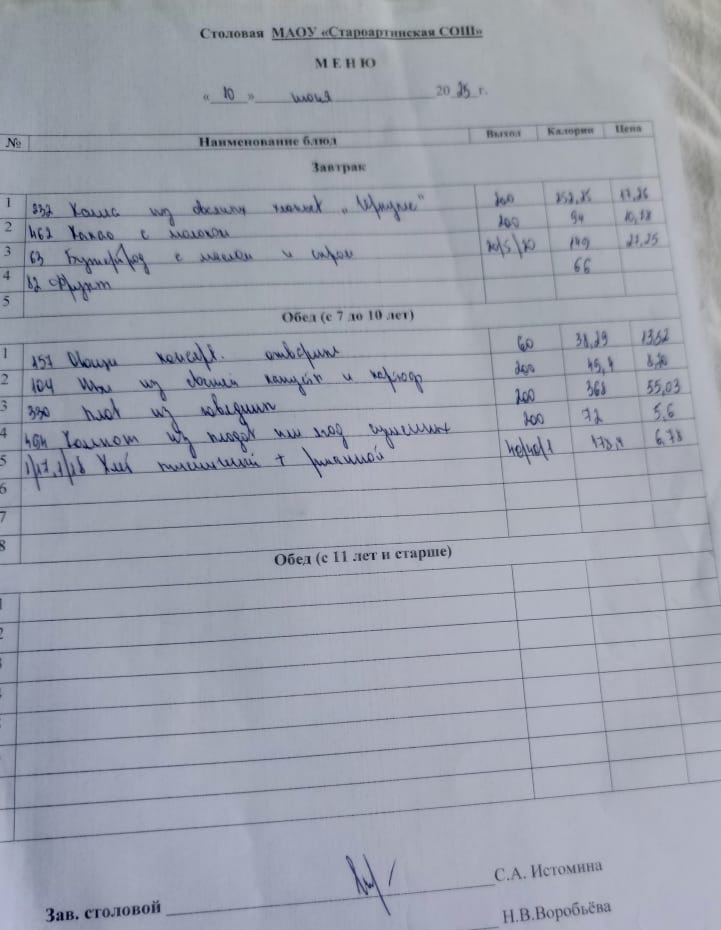 Столовая МАОУ «Староартинская СОШ»
МЕНЮ
« 10 » июня 20 25 г.
№ Наименование блюд Выход Калории Цена
Завтрак
1 232 Каша из овсяных хлопьев „Геркулес" 200 252,25 17,26
2 462 Какао с молоком 200 94 10,38
3 63 Бутерброд с маслом и сыром 149 27,25
4 82 Фрукт 66
5
Обед (с 7 до 10 лет)
1 157 Овощи консерв. отварные 60 38,29 1352
2 104 Щи из свежей капусты и картоф 200 8,20
3 330 Плов из говядины 200 368 55,03
4 494 Компот из плодов или ягод сушеных 200 72 5,6
5 Хлеб пшеничный + ржаной 178,9 6,78
6
7
8
Обед (с 11 лет и старше)
1
2
3
Зав. столовой С.А. Истомина
Н.В.Воробьёва